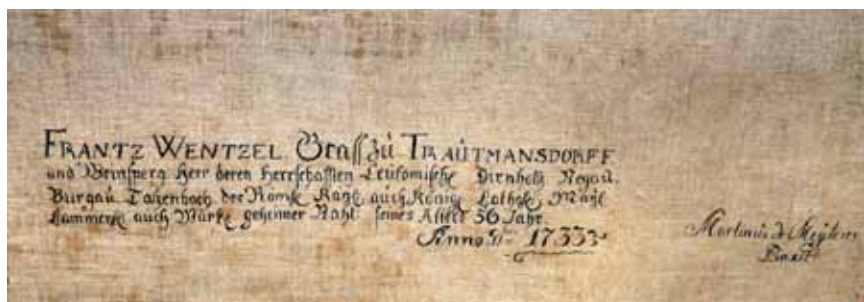 FRANTZ WENTZEL Graff zu TRAUTMANSDORFF
und Weinsperg Herr deren Herrschafften Leutomischl Dirnholtz Negau.
Burgau Tatzenbach der Römk Kayl auch König Cathol Mayl
Cammerer auch Würkl geheimer Raht seines Alters 56 Jahr.
Anno Dni 1733
Martinus de Meytens
Pinxit